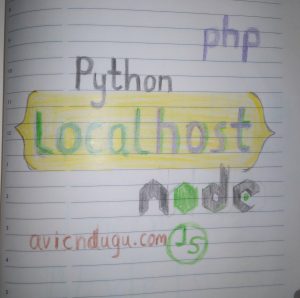 php
Python
localhost
node
avicndugu.com JS